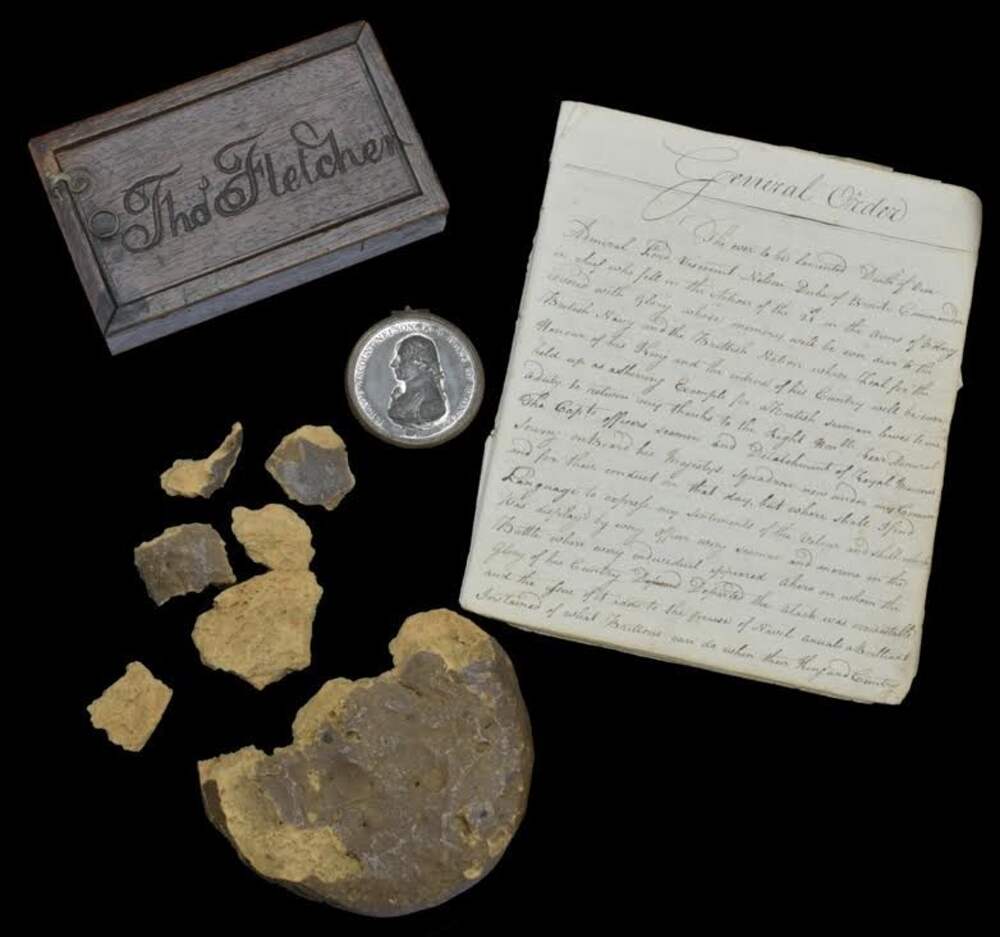 Thos Fletcher
General Order
The ever to be lamented Death of Vice
Admiral Lord Viscount Nelson Duke of Bronte Commander
in Chief who fell in the Action of the 21st in the Arms of Victory
covered with Glory whose memory will be ever dear to the
British Navy and the Brittish Nation whose Zeal for the
Honour of his King and the interest of his Country will be ever
held up as a shining Example for a Brittish seaman leaves to me
a duty to return my thanks to the Right Honbl Rear Admiral
The Capts officers seamen and Detachment of Royal Marines
serving onboard his Majestys Squadron now under my Command
and for their conduct on that day, but where shall I find
Language to express my sentiments of the Valour and skill which
Was displaid by every officer every seaman and marine in the
Battle where every individual appeared a hero on whom the
Glory of his Country Depended the attack was irresistable
and the of it adds to the of Naval annals a Brilliant
Instance of what Brittons can do when their King and Country